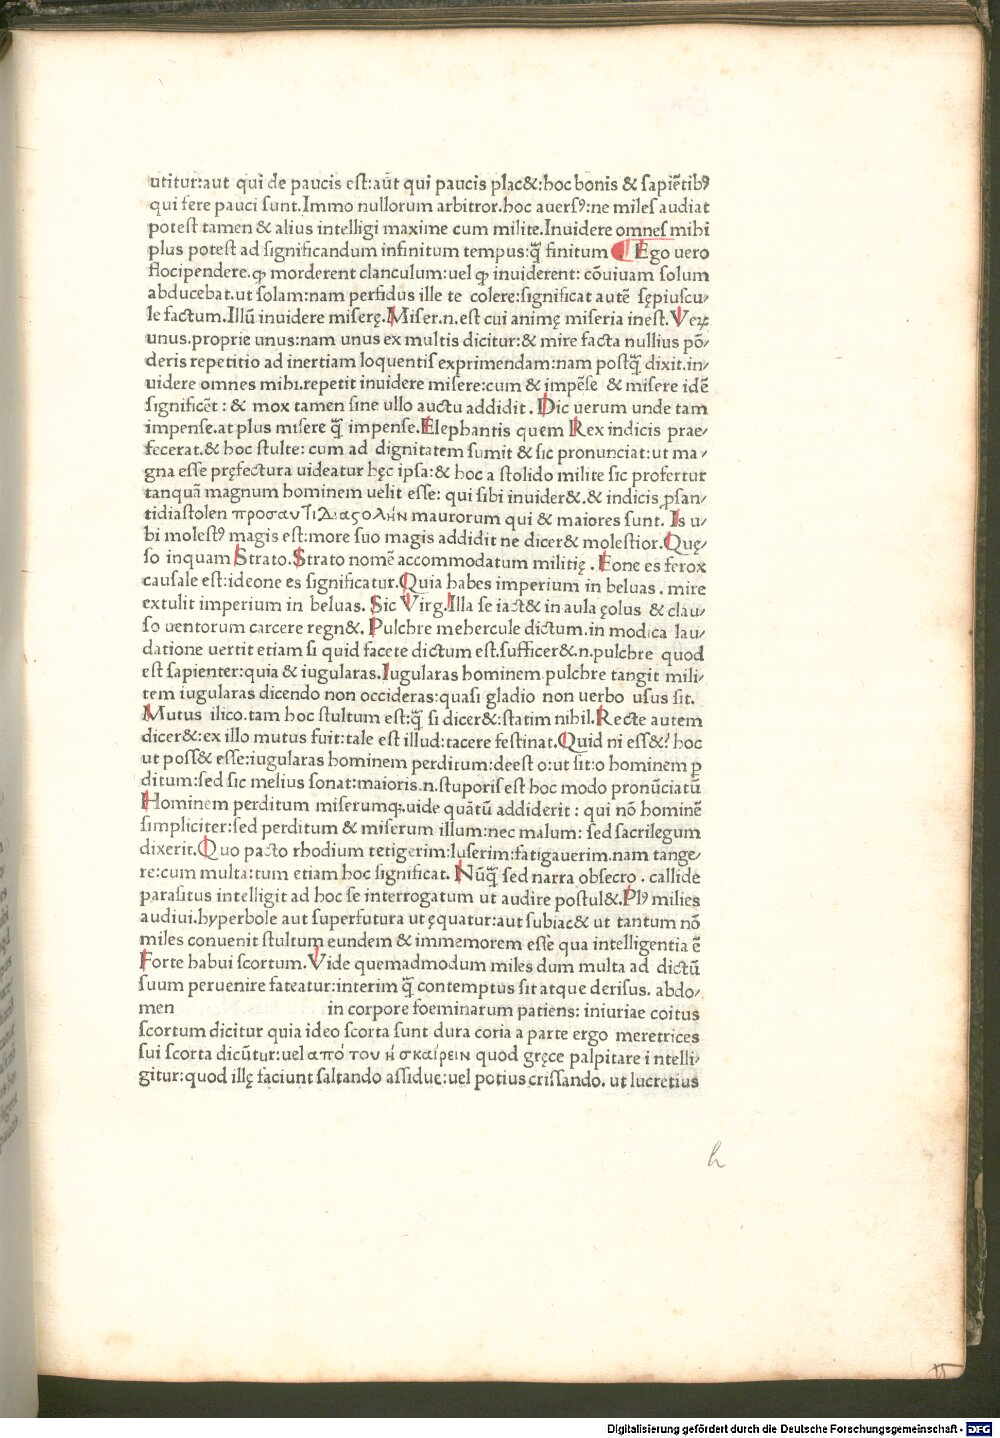 utitur:aut qui de paucis est:aut qui paucis plac&:hoc bonis & sapiẽtibꝰ
qui fere pauci sunt.Immo nullorum arbitror.hoc auersꝰ:ne miles audiat
potest tamen & alius intelligi maxime cum milite.Inuidere omnes mihi
plus potest ad significandum infinitum tempus:q̃ finitum ¶ Ego uero
flocipendere.ꝙ morderent clanculum:uel ꝙ inuiderent: cõuiuam solum
abducebat.ut solam:nam perfidus ille te colere:significat autẽ sępiuscu/
le factum.Illũ inuidere miserę.Miser.n.est cui animę miseria inest.Veꝝ
unus.proprie unus:nam unus ex multis dicitur:& mire facta nullius põ/
deris repetitio ad inertiam loquentis exprimendam:nam postq̃ dixit.in/
uidere omnes mihi.repetit inuidere misere:cum & impẽse & misere idẽ
significẽt: & mox tamen sine ullo auctu addidit. Dic uerum unde tam
impense.at plus misere q̃ impense.Elephantis quem Rex indicis prae/
fecerat.& hoc stulte: cum ad dignitatem sumit & sic pronunciat:ut ma/
gna esse pręfectura uideatur hęc ipsa:& hoc a stolido milite sic profertur
tanquã magnum hominem uelit esse: qui sibi inuider&.& indicis ꝑsan/
tidiastolen προσαντιδιαςολὴν maurorum qui & maiores sunt. Is u/
bi molestꝰ magis est:more suo magis addidit ne dicer& molestior.Quę/
so inquam Strato.Strato nomẽ accommodatum militię. Eone es ferox
causale est:ideone es significatur.Quia habes imperium in beluas. mire
extulit imperium in beluas. Sic Virg.Illa se iact& in aula ęolus & clau/
so uentorum carcere regn&. Pulchre mehercule dictum.in modica lau/
datione uertit etiam si quid facete dictum est.sufficer&.n.pulchre quod
est sapienter:quia & iugularas.Iugularas hominem pulchre tangit mili/
tem iugularas dicendo non occideras:quasi gladio non uerbo usus sit.
Mutus ilico.tam hoc stultum est:q̃ si dicer&:statim nihil.Recte autem
dicer&:ex illo mutus fuit:tale est illud:tacere festinat.Quid ni ess&? hoc
ut poss& esse:iugularas hominem perditum:deest o:ut sit:o hominem ꝑ
ditum:sed sic melius sonat:maioris.n.stuporis est hoc modo pronũciatũ
Hominem perditum miserumq;.uide quãtũ addiderit: qui nõ hominẽ
simpliciter:sed perditum & miserum illum:nec malum: sed sacrilegum
dixerit.Quo pacto rhodium tetigerim:luserim:fatigauerim.nam tange/
re:cum multa:tum etiam hoc significat. Nũq̃ sed narra obsecro. callide
parasitus intelligit ad hoc se interrogatum ut audire postul&.Plꝰ milies
audiui.hyperbole aut superfutura ut ęquatur:aut subiac& ut tantum nõ
miles conuenit stultum eundem & immemorem esse qua intelligentia ẽ
Forte habui scortum.Vide quemadmodum miles dum multa ad dictũ
suum peruenire fateatur:interim q̃ contemptus sit atque derisus. abdo/
men in corpore foeminarum patiens: iniuriae coitus
scortum dicitur quia ideo scorta sunt dura coria a parte ergo meretrices
sui scorta dicũtur:uel ἀπό του ἠ σκαίρειν quod gręce palpitare i ntelli/
gitur:quod illę faciunt saltando assidue:uel potius crissando. ut lucretius
h
Digitalisierung gefördert durch die Deutsche Forschungsgemeinschaft - DFG